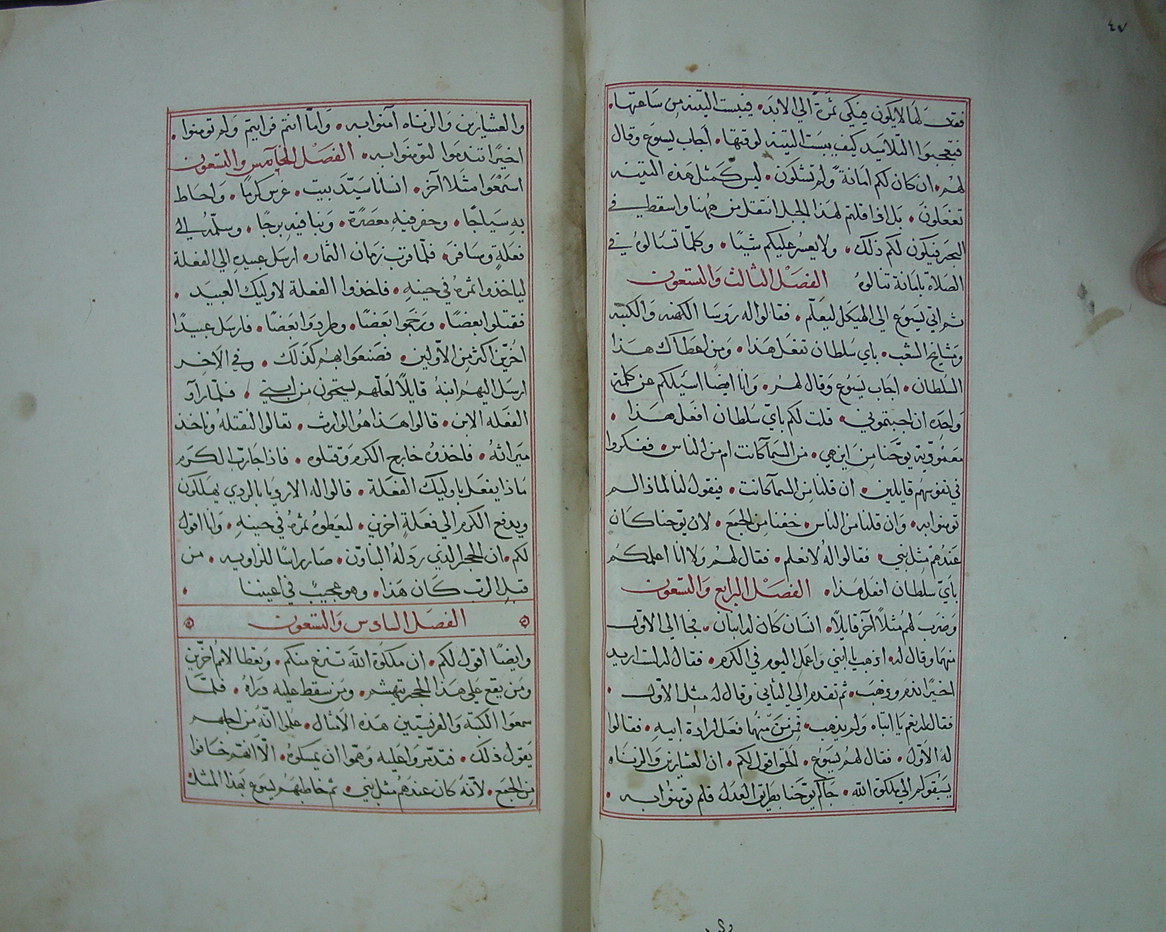 ٤٧
فقال لها لا يكون منكى ثمرة الى الابد • فيبست التينه من ساعتها •
فتعجبوا التلاميد كيف يبست التينه لوقتها • اجاب يسوع وقال
لهم • ان كان لكم امانة ولم تشكون • ليس كمثل هذه التينه
تفعلون • بل اذا قلتم لهذا الجبل انتقل من ههنا واسقط في
البحر فيكون لكم ذلك • ولا يعسر عليكم شيا • وكلما تسالوه في
الصلاه بامانة تنالوه الفصل الثالث والتسعون
ثم اتى يسوع الى الهيكل ليعلم • فقالوا له روسا الكهنه والكتبه
ومشايخ الشعب • باي سلطان تفعل هذا • ومن اعطاك هذا
السلطان • اجاب يسوع وقال لهم • وانا ايضا اسيلكم عن كلمة
واحده ان اجبتموني • قلت لكم باي سلطان افعل هذا •
معمودية يوحنا من اين هي • من السما كانت ام من الناس • ففكروا
في نفوسهم قايلين • ان قلنا من السما كانت • فيقول لنا لماذا لم
تومنوا به • وان قلنا من الناس • خفنا من الجمع • لان يوحنا كان
عندهم مثل نبي • فقالوا له لا نعلم • فقال لهم ولا انا اعلمكم
باي سلطان افعل هذا • الفصل الرابع والتسعون
وضرب لهم مثلا آخر قايلا • انسان كان له ابنان • فجا الى الاول
منهما وقال له • اذهب يا ابني واعمل اليوم في الكرم • فقال له لست اريد
اخيرا ندم وذهب • ثم تقدم الى الثاني وقال له مثل الاول •
فقال له نعم يا ابتاه ولم يذهب • فمن منهما فعل ارادة ابيه • فقالوا
له الاول • فقال لهم يسوع • الحق اقول لكم • ان العشارين والزناه
يسبقوكم الى ملكوة الله • جاكم يوحنا بطريق العدل فلم تومنوا به •
والعشارين والزناه آمنوا به • واما انتم فرايتم ولم تومنوا •
اخيرا تندموا لتومنوا به • الفصل الخامس والتسعون
استمعوا مثلا آخر • انسانا سيد بيت • غرس كرمًا • واحاط
به سياجًا • وحفر فيه معصرة • وبنا فيه برجًا • وسلمه الى
فعلة وسافر • فلما قرب زمان الثمار • ارسل عبيده الى الفعلة
لياخذوا ثمره في حينه • فاخذوا الفعلة لاوليك العبيد •
فقتلوا بعضًا • ورجموا بعضًا • وطردوا بعضًا • فارسل عبيدًا
اخرين اكثر من الاولين • فصنعوا بهم كذلك • وفي الاخر
ارسل اليهم ابنه قايلًا لعلهم يستحون من ابني • فلما راو
الفعلة الابن • قالوا هذا هو الوارث • تعالوا لنقتله وناخذ
ميراثه • فاخذوه خارج الكرم وقتلوه • فاذا جا رب الكرم
ماذا يفعل باوليك الفعلة • قالوا له الارديا بالردي يهلكون
ويدفع الكرم الى فعلة اخرين • ليعطوه ثمرة في حينه • وانا اقول
لكم • ان الحجر الذي ردله البناون • صار راسًا للزاويه • من
قبل الرب كان هذا • وهو عجيب في اعيننا •
الفصل السادس والتسعون
وايضًا اقول لكم • ان ملكوة الله تنزع منكم • وتعطا لامم اخرين
ومن يقع على هذا الحجر يتهشم • ومن سقط عليه ذراه • فلما
سمعوا الكهنة والفريسيين هذه الامثال • علموا انه من اجلهم
يقول ذلك • فتدبروا عليه وهموا ان يمسكوه • الا انهم خافوا
من الجمع • لانه كان عندهم مثل نبي • ثم خاطبهم يسوع بهذا المثل